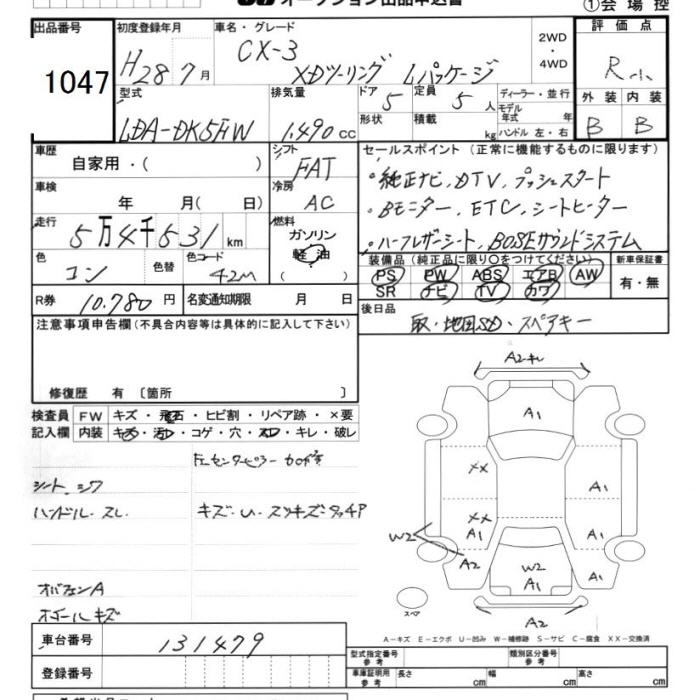 オークション出品申込書
①会場控
出品番号
1047
初度登録年月
H28 7月
車名・グレード
CX-3
XDツーリング Lパッケージ
2WD
・
4WD
評価点
R
外装 内装
B B
型式
LDA-DK5FW
排気量
1,490 cc
ドア
5
定員
5人
ディーラー・並行
モデル
年式 年
形状
積載
kg
ハンドル 左・右
車歴
自家用・( )
シフト
FAT
車検
年 月( 日)
冷房
AC
走行
5万4千531km
燃料
ガソリン
軽油
( )
色
コン
色替
色コード
42M
R券
10,780円
名変通知期限 月 日
セールスポイント(正常に機能するものに限ります)
・純正ナビ、DTV、プッシュスタート
・Bモニター、ETC、シートヒーター
・ハーフレザーシート、BOSEサウンドシステム
装備品(純正品に限り○をつけてください)
PS PW ABS エアB AW
SR ナビ TV カワ
新車保証書
有・無
後日品
取・地図SD・スペアキー
注意事項申告欄(不具合内容等は具体的に記入して下さい)
修復歴 有〔箇所 〕
検査員
記入欄
FW キズ・飛石・ヒビ割・リペア跡・×要
内装 キズ・汚レ・コゲ・穴・スレ・キレ・破レ
シート シワ
ハンドル スレ
キズ・U・スリキズ・タッチP
A2キレ
A1
XX
XX
A1
A1
W2
A2
W2
A1
A1
A2
スペア
A-キズ E-エクボ U-凹み W-補修跡 S-サビ C-腐食 XX-交換済
車台番号
131479
登録番号
型式指定番号
参考
類別区分番号
参考
車庫証明用
参考
長さ cm
幅 cm
高さ cm